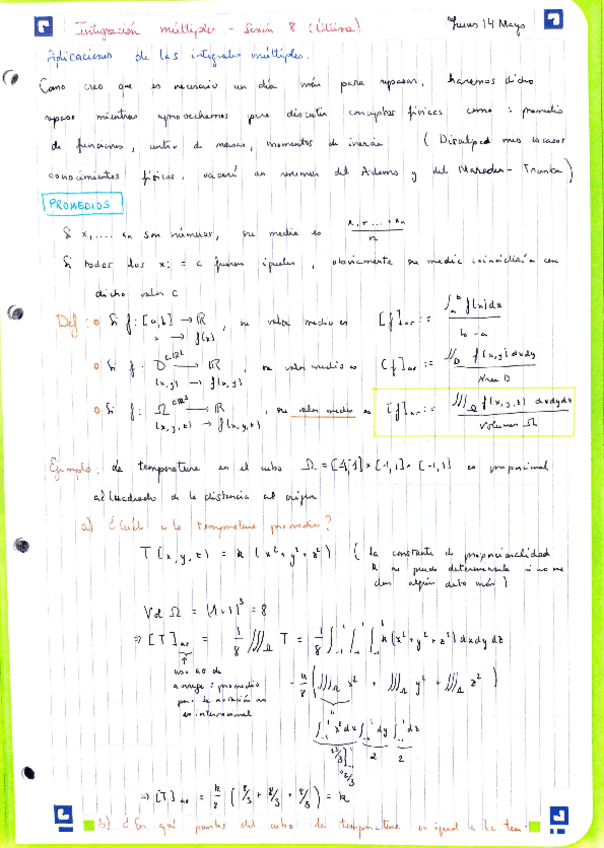 Integración múltiple - Sesión 8 (Última)
Jueves 14 Mayo
Aplicaciones de las integrales múltiples.
Como creo que es necesario un día más para repasar, haremos dicho
repaso mientras aprovechamos para discutir conceptos físicos como: promedio
de funciones, centro de masas, momentos de inercia (Disculpad mis escasos
conocimientos físicos, sacaré un resumen del Adams y del Marsden-Tromba)
PROMEDIOS
Si x₁, ... xₙ son números, su media es (x₁ + ... + xₙ)/n
Si todos los xᵢ = c fueran iguales, obviamente su media coincidiría con
dicho valor c
Def: o Si f: [a,b] → ℝ, su valor medio es [f]av := ∫ₐᵇ f(x)dx / (b-a)
x → f(x)
o Si f: D ⊂ ℝ² → ℝ, su valor medio es [f]av := ∬_D f(x,y) dxdy / Area D
(x,y) → f(x,y)
o Si f: Ω ⊂ ℝ³ → ℝ, su valor medio es [f]av := ∭_Ω f(x,y,z) dxdydz / Volumen Ω
(x,y,z) → f(x,y,z)
Ejemplo: la temperatura en el cubo Ω = [-1,1]×[-1,1]×[-1,1] es proporcional
al cuadrado de la distancia al origen
a) ¿Cuál es la temperatura promedio?
T(x,y,z) = k (x²+y²+z²) (la constante de proporcionalidad
k no puede determinarse si no me
dan algún dato más)
Vol Ω = (1+1)³ = 8
⇒ [T]av = 1/8 ∭_Ω T = 1/8 ∫₋₁¹ ∫₋₁¹ ∫₋₁¹ k(x²+y²+z²) dxdydz
uso av de
average = promedio
pues la notación
es internacional
= k/8 (∭_Ω x² + ∭_Ω y² + ∭_Ω z²)
∫₋₁¹ x²dx ∫₋₁¹ dy ∫₋₁¹ dz
x³/3]₋₁¹ 2 2
= 2/3
⇒ [T]av = k/8 (8/3 + 8/3 + 8/3) = k
b) ¿En qué puntos del cubo la temperatura es igual a la tem-